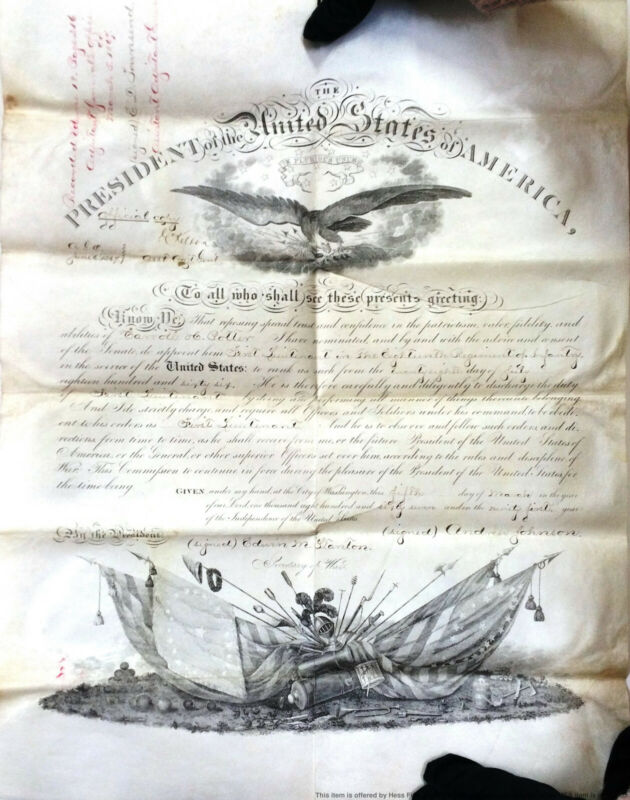 THE
PRESIDENT of the United States of AMERICA,
E PLURIBUS UNUM
official copy
To all who shall see these presents greeting:
Know Ye, That reposing special trust and confidence in the patriotism, valor, fidelity, and
abilities of Carroll H. Potter I have nominated, and by and with the advice and consent
of the Senate, do appoint him First Lieutenant in the Eighteenth Regiment of Infantry
in the service of the United States: to rank as such from the Twenty eighth day of July
eighteen hundred and sixty six. He is therefore carefully and diligently to discharge the duty
of First Lieutenant by doing and performing all manner of things thereunto belonging.
And I do strictly charge, and require all Officers and Soldiers under his command to be obedi-
ent to his orders as First Lieutenant And he is to observe and follow such orders, and di-
rections, from time to time, as he shall receive from me, or the future President of the United States of
America, or the General or other superior Officers set over him, according to the rules and discipline of
War. This Commission to continue in force during the pleasure of the President of the United States, for
the time being.
GIVEN under my hand, at the City of Washington, this fifth day of March in the year
of our Lord, one thousand eight hundred and sixty seven and in the ninety first year
of the Independence of the United States.
By the President
(signed) Andrew Johnson.
(signed) Edwin M. Stanton.
Secretary of War.
This item is offered by Hess